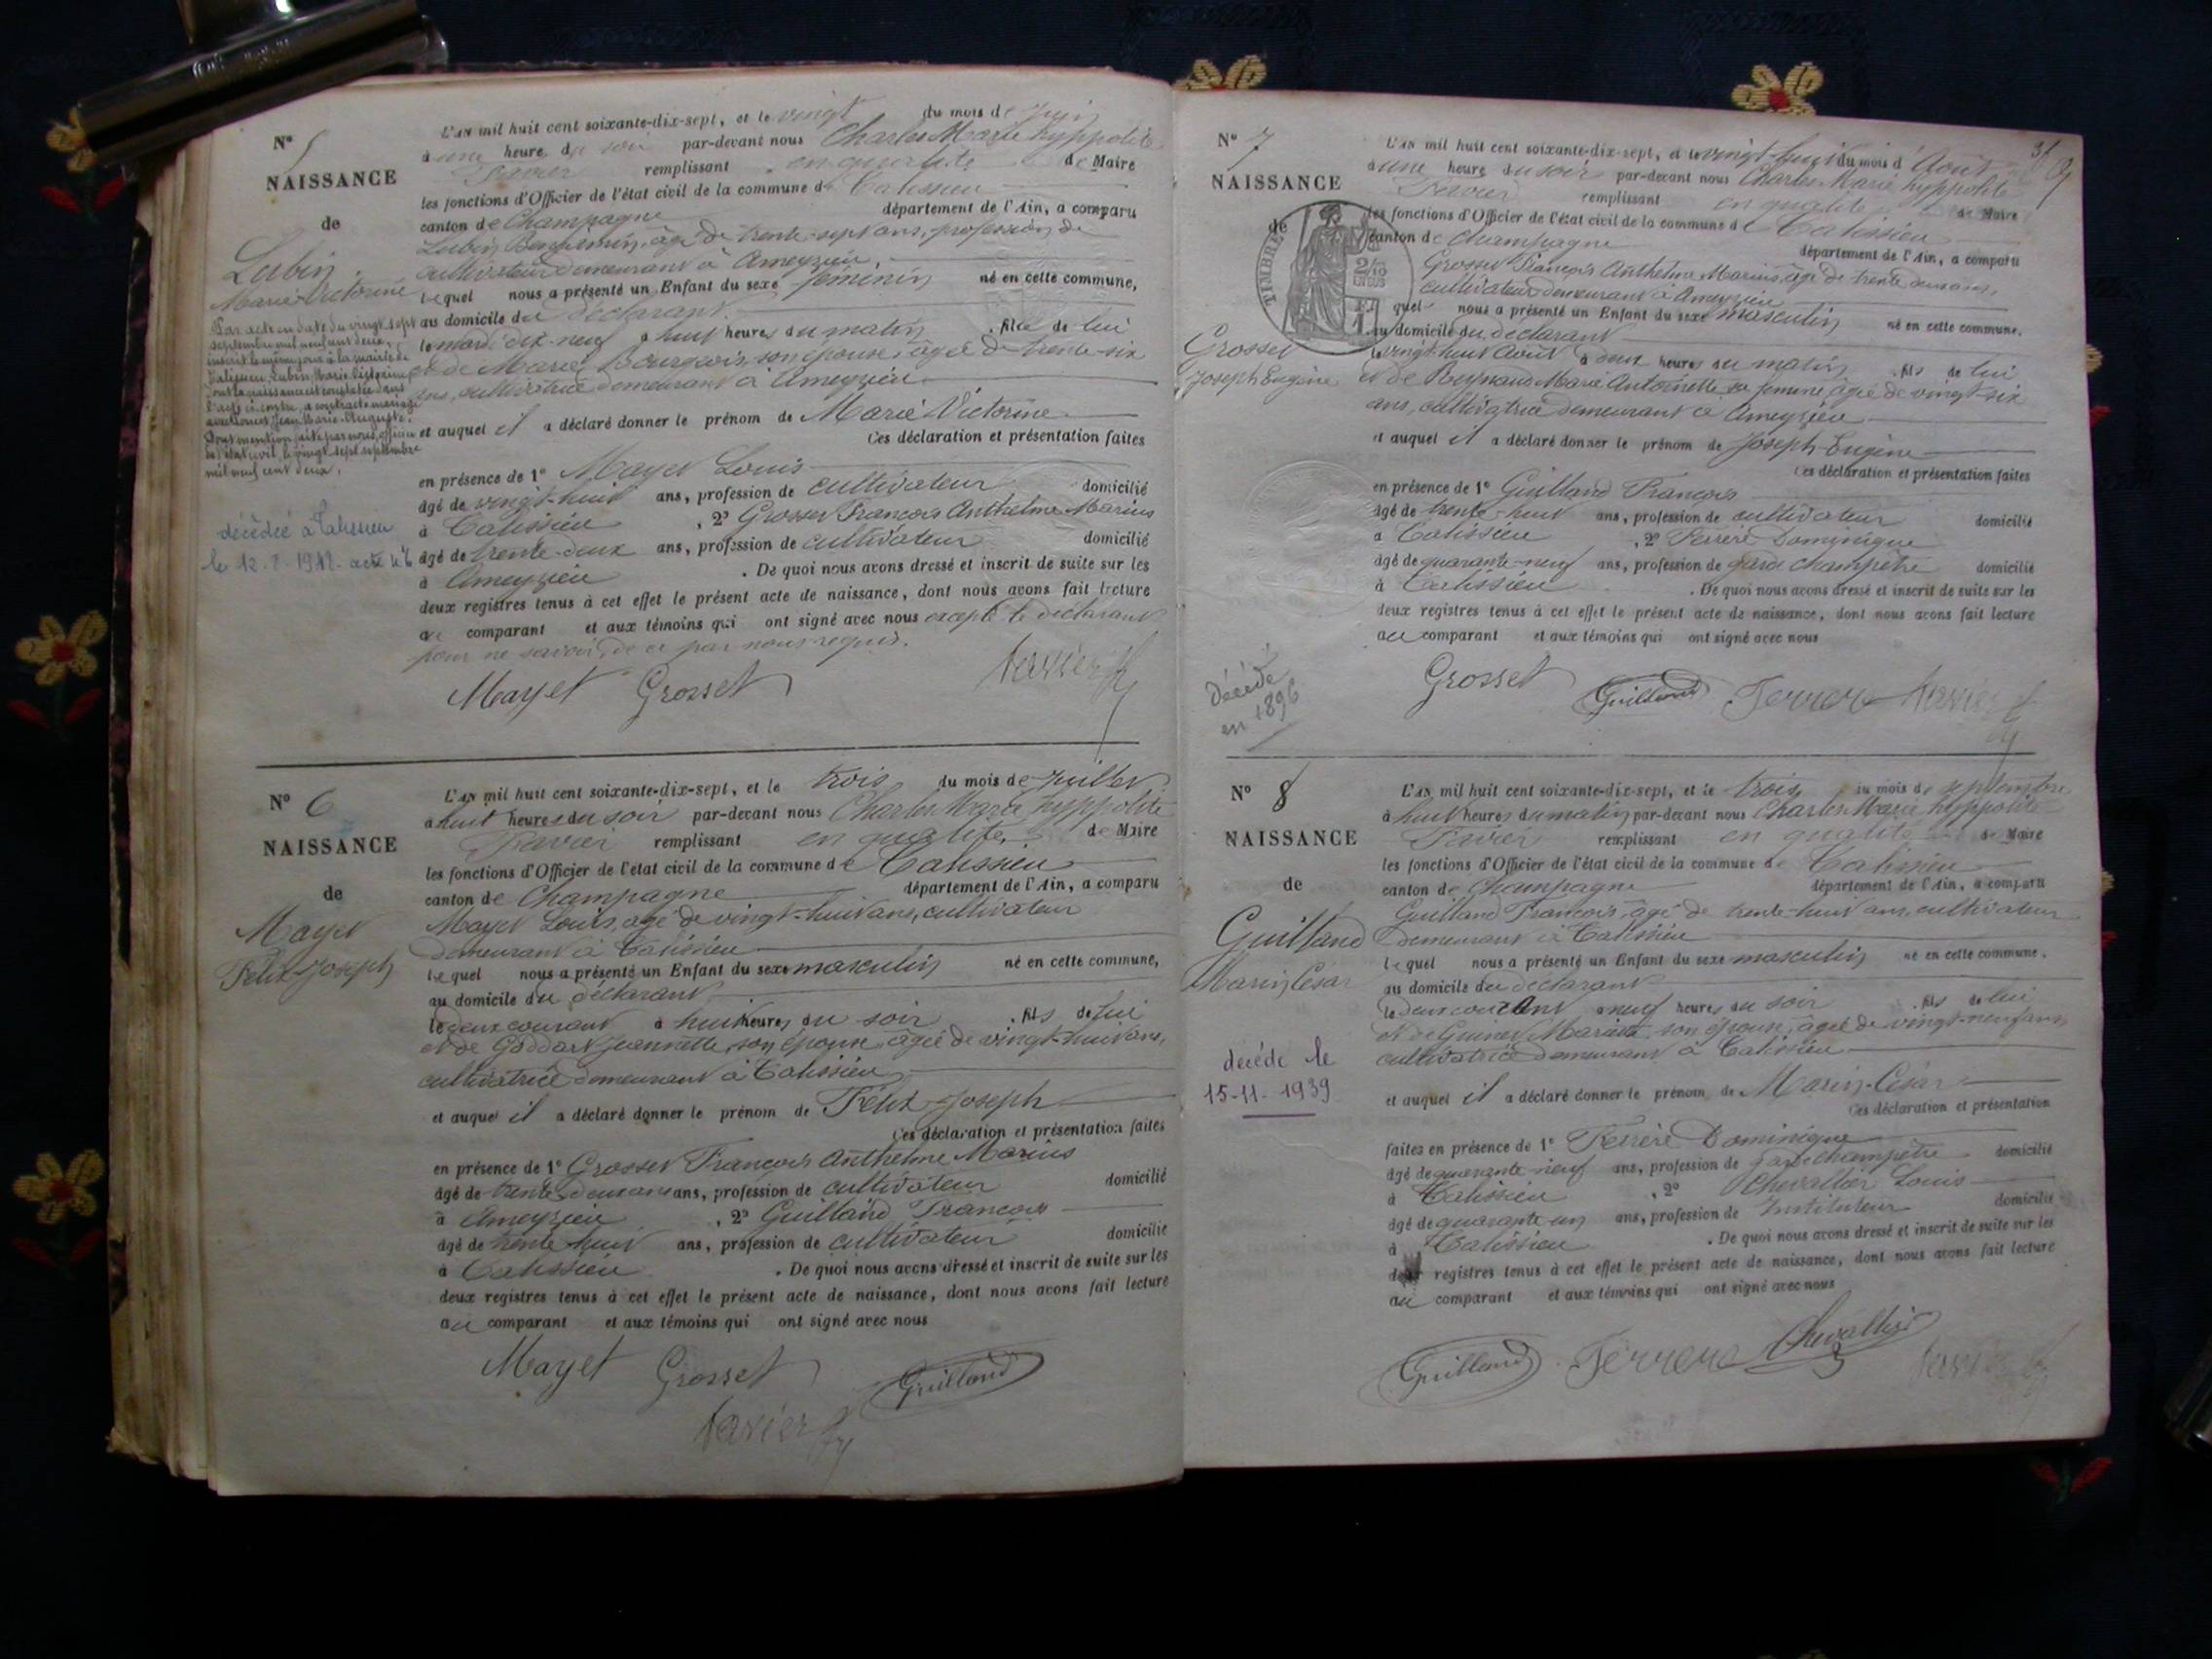 N° 5
NAISSANCE
de
Lubin
Marie-Victorine
Par acte en date du vingt sept
septembre mil neuf cent deux,
inscrit le même jour à la mairie de
Talissieu, Lubin Marie Victorine
dont la naissance est constatée dans
l'acte ci-contre, a contracté mariage
avec Jean Marie Auguste.
Dont mention faite par nous, officier
de l'état civil, le vingt sept septembre
mil neuf cent deux.
décédée à Talissieu
L'AN mil huit cent soixante-dix-sept, et le vingt du mois de Juin
à une heure du soir par-devant nous Charles Marie hyppolite
Tavier remplissant en qualité de Maire
les fonctions d'Officier de l'état civil de la commune de Talissieu
canton de Champagne département de l'Ain, a comparu
Lubin Benjamin, âgé de trente-sept ans, profession de
cultivateur demeurant à Ameyzieu,
lequel nous a présenté un Enfant du sexe féminin né en cette commune,
au domicile du déclarant.
le mardi dix-neuf à huit heures du matin, fille de lui
et de Marie Bourgeois, son épouse, âgée de trente-six
ans, cultivatrice demeurant à Ameyzieu
et auquel il a déclaré donner le prénom de Marie Victorine
Ces déclaration et présentation faites
en présence de 1° Mayet Louis
âgé de vingt-huit ans, profession de cultivateur domicilié
à Talissieu, 2° Grosset François Anthelme Marius
âgé de trente-deux ans, profession de cultivateur domicilié
à Ameyzieu. De quoi nous avons dressé et inscrit de suite sur les
deux registres tenus à cet effet le présent acte de naissance, dont nous avons fait lecture
au comparant et aux témoins qui ont signé avec nous excepté le déclarant
pour ne savoir, de ce par nous requis.
Mayet Grosset Tavier
N° 6
NAISSANCE
de
Mayet
Félix-Joseph
L'AN mil huit cent soixante-dix-sept, et le trois du mois de Juillet
à huit heures du soir par-devant nous Charles Marie hyppolite
Tavier remplissant en qualité de Maire
les fonctions d'Officier de l'état civil de la commune de Talissieu
canton de Champagne département de l'Ain, a comparu
Mayet Louis, âgé de vingt-huit ans, cultivateur
demeurant à Talissieu
lequel nous a présenté un Enfant du sexe masculin né en cette commune,
au domicile du déclarant
le deux courant à huit heures du soir, fils de lui
et de Goddart Jeannette, son épouse, âgée de vingt-huit ans,
cultivatrice demeurant à Talissieu
et auquel il a déclaré donner le prénom de Félix Joseph
Ces déclaration et présentation faites
en présence de 1° Grosset François Anthelme Marius
âgé de trente-deux ans ans, profession de cultivateur domicilié
à Ameyzieu, 2° Guilland François
âgé de trente huit ans, profession de cultivateur domicilié
à Talissieu. De quoi nous avons dressé et inscrit de suite sur les
deux registres tenus à cet effet le présent acte de naissance, dont nous avons fait lecture
au comparant et aux témoins qui ont signé avec nous
Mayet Grosset Guilland
Tavier
N° 7
NAISSANCE
de
TIMBRE
Grosset
Joseph Eugène
décédé
en 1896
L'AN mil huit cent soixante-dix-sept, et le vingt-huit du mois d'Août
à une heure du soir par-devant nous Charles Marie hyppolite
Tavier remplissant en qualité de Maire
les fonctions d'Officier de l'état civil de la commune de Talissieu
canton de Champagne département de l'Ain, a comparu
Grosset François Anthelme Marius, âgé de trente deux ans,
cultivateur demeurant à Ameyzieu
quel nous a présenté un Enfant du sexe masculin né en cette commune,
au domicile du déclarant
le vingt-huit Août à deux heures du matin, fils de lui
et de Reynaud Marie Antoinette, sa femme âgée de vingt-six
ans, cultivatrice demeurant à Ameyzieu
et auquel il a déclaré donner le prénom de Joseph-Eugène
Ces déclaration et présentation faites
en présence de 1° Guilland François
âgé de trente-huit ans, profession de cultivateur domicilié
à Talissieu, 2° Ferrère Dominique
âgé de quarante-neuf ans, profession de garde champêtre domicilié
à Talissieu. De quoi nous avons dressé et inscrit de suite sur les
deux registres tenus à cet effet le présent acte de naissance, dont nous avons fait lecture
au comparant et aux témoins qui ont signé avec nous
Grosset Guilland Ferrere Tavier
N° 8
NAISSANCE
de
Guilland
Marin César
décédé le
15-11-1939
L'AN mil huit cent soixante-dix-sept, et le trois du mois de septembre
à huit heures du matin par-devant nous Charles Marie hyppolite
Tavier remplissant en qualité de Maire
les fonctions d'Officier de l'état civil de la commune de Talissieu
canton de Champagne département de l'Ain, a comparu
Guilland François, âgé de trente-huit ans, cultivateur
demeurant à Talissieu
lequel nous a présenté un Enfant du sexe masculin né en cette commune,
au domicile du déclarant
le deux courant à neuf heures du soir, fils de lui
et de Guinet son épouse, âgée de vingt-neuf ans
cultivatrice demeurant à Talissieu
et auquel il a déclaré donner le prénom de Marin-César
Ces déclaration et présentation
faites en présence de 1° Ferrère Dominique
âgé de quarante-neuf ans, profession de garde champêtre domicilié
à Talissieu, 2° Chevallier Louis
âgé de quarante-un ans, profession de Instituteur domicilié
à Talissieu. De quoi nous avons dressé et inscrit de suite sur les
deux registres tenus à cet effet le présent acte de naissance, dont nous avons fait lecture
au comparant et aux témoins qui ont signé avec nous
Guilland Ferrere Chevallier Tavier